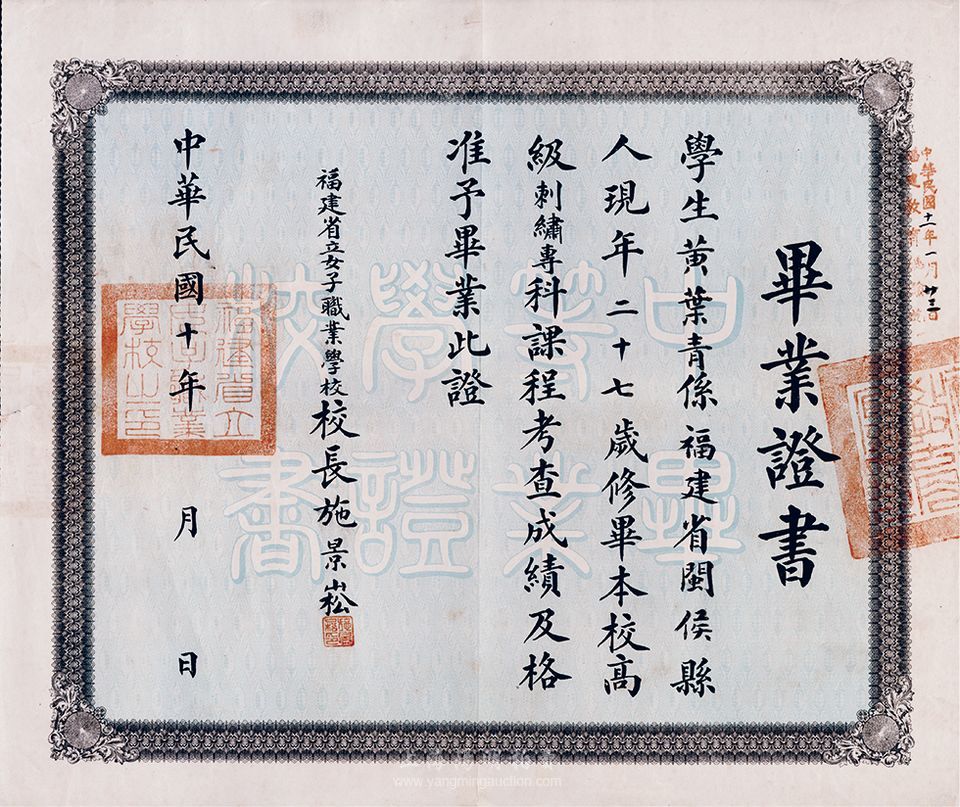 畢業證書
學生黃葉青係福建省閩侯縣
人現年二十七歲修畢本校高
級刺繡專科課程考查成績及格
准予畢業此證
福建省立女子職業學校校長施景崧
中華民國十年 月 日
中等學校
畢業證書
福建省立
女子職業
學校之印
中華民國十一年一月廿三日
福建教育
www.yangmingauction.com